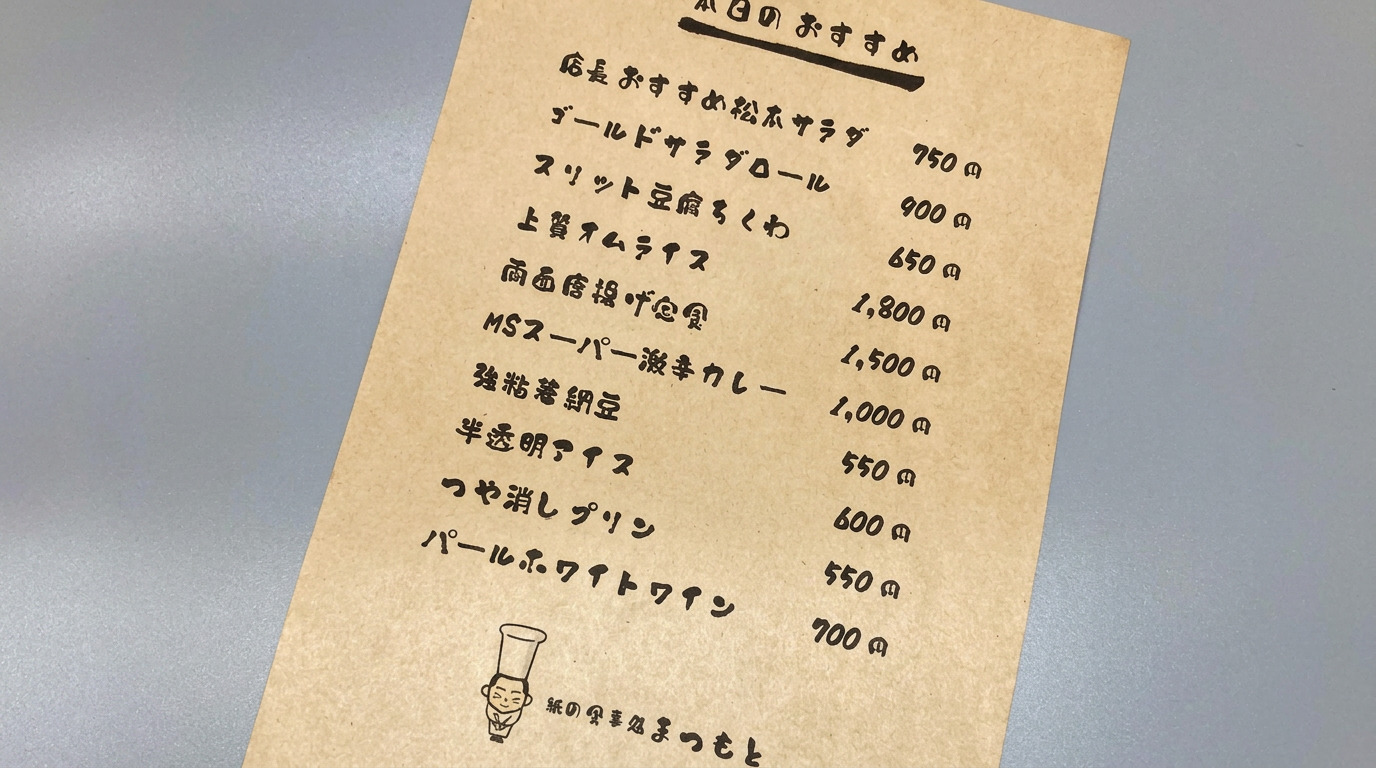 本日のおすすめ
店長おすすめ松本サラダ 750円
ゴールドサラダロール 900円
スリット豆腐ちくわ 650円
上質オムライス 1,800円
両面唐揚げ定食 1,500円
MSスーパー激辛カレー 1,000円
強粘着納豆 550円
半透明アイス 600円
つや消しプリン 550円
パールホワイトワイン 700円
紙のお食事処まつもと